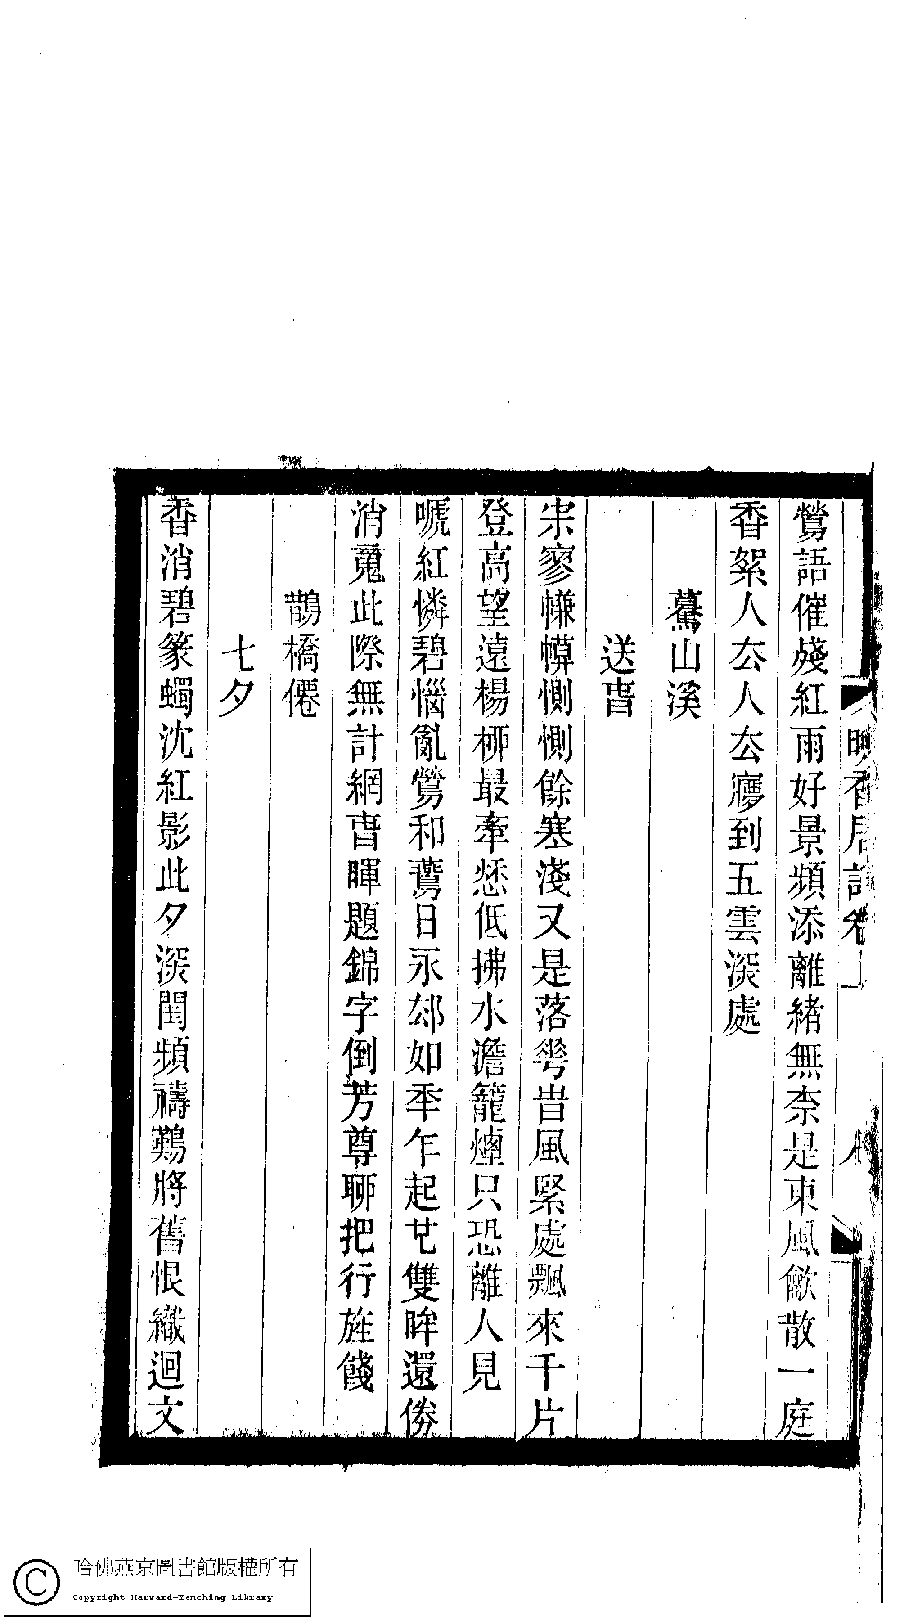 鶯語催殘紅雨好景頻添離緒無柰是東風僽散一庭
香絮人厺人厺㾕到五雲深處
驀山溪
送萅
寀寥㡘幙惻惻餘寒淺又是落蘤旹風緊處飄來千片
登高望遠楊桺最牽愁低拂水澹籠煙只恐離人見
嗁紅憐碧惱亂鶯和鷰日永郤如秊乍起㞢雙眸還傍
消䰟此際無計網萅暉題錦字倒芳尊聊把行旌餞
鵲橋僊
七夕
香消碧篆蠋沈紅影此夕深閨頻禱鷄將舊恨織迴文
哈佛燕京圖書館版權所有
Copyright Harvard-Yenching Library